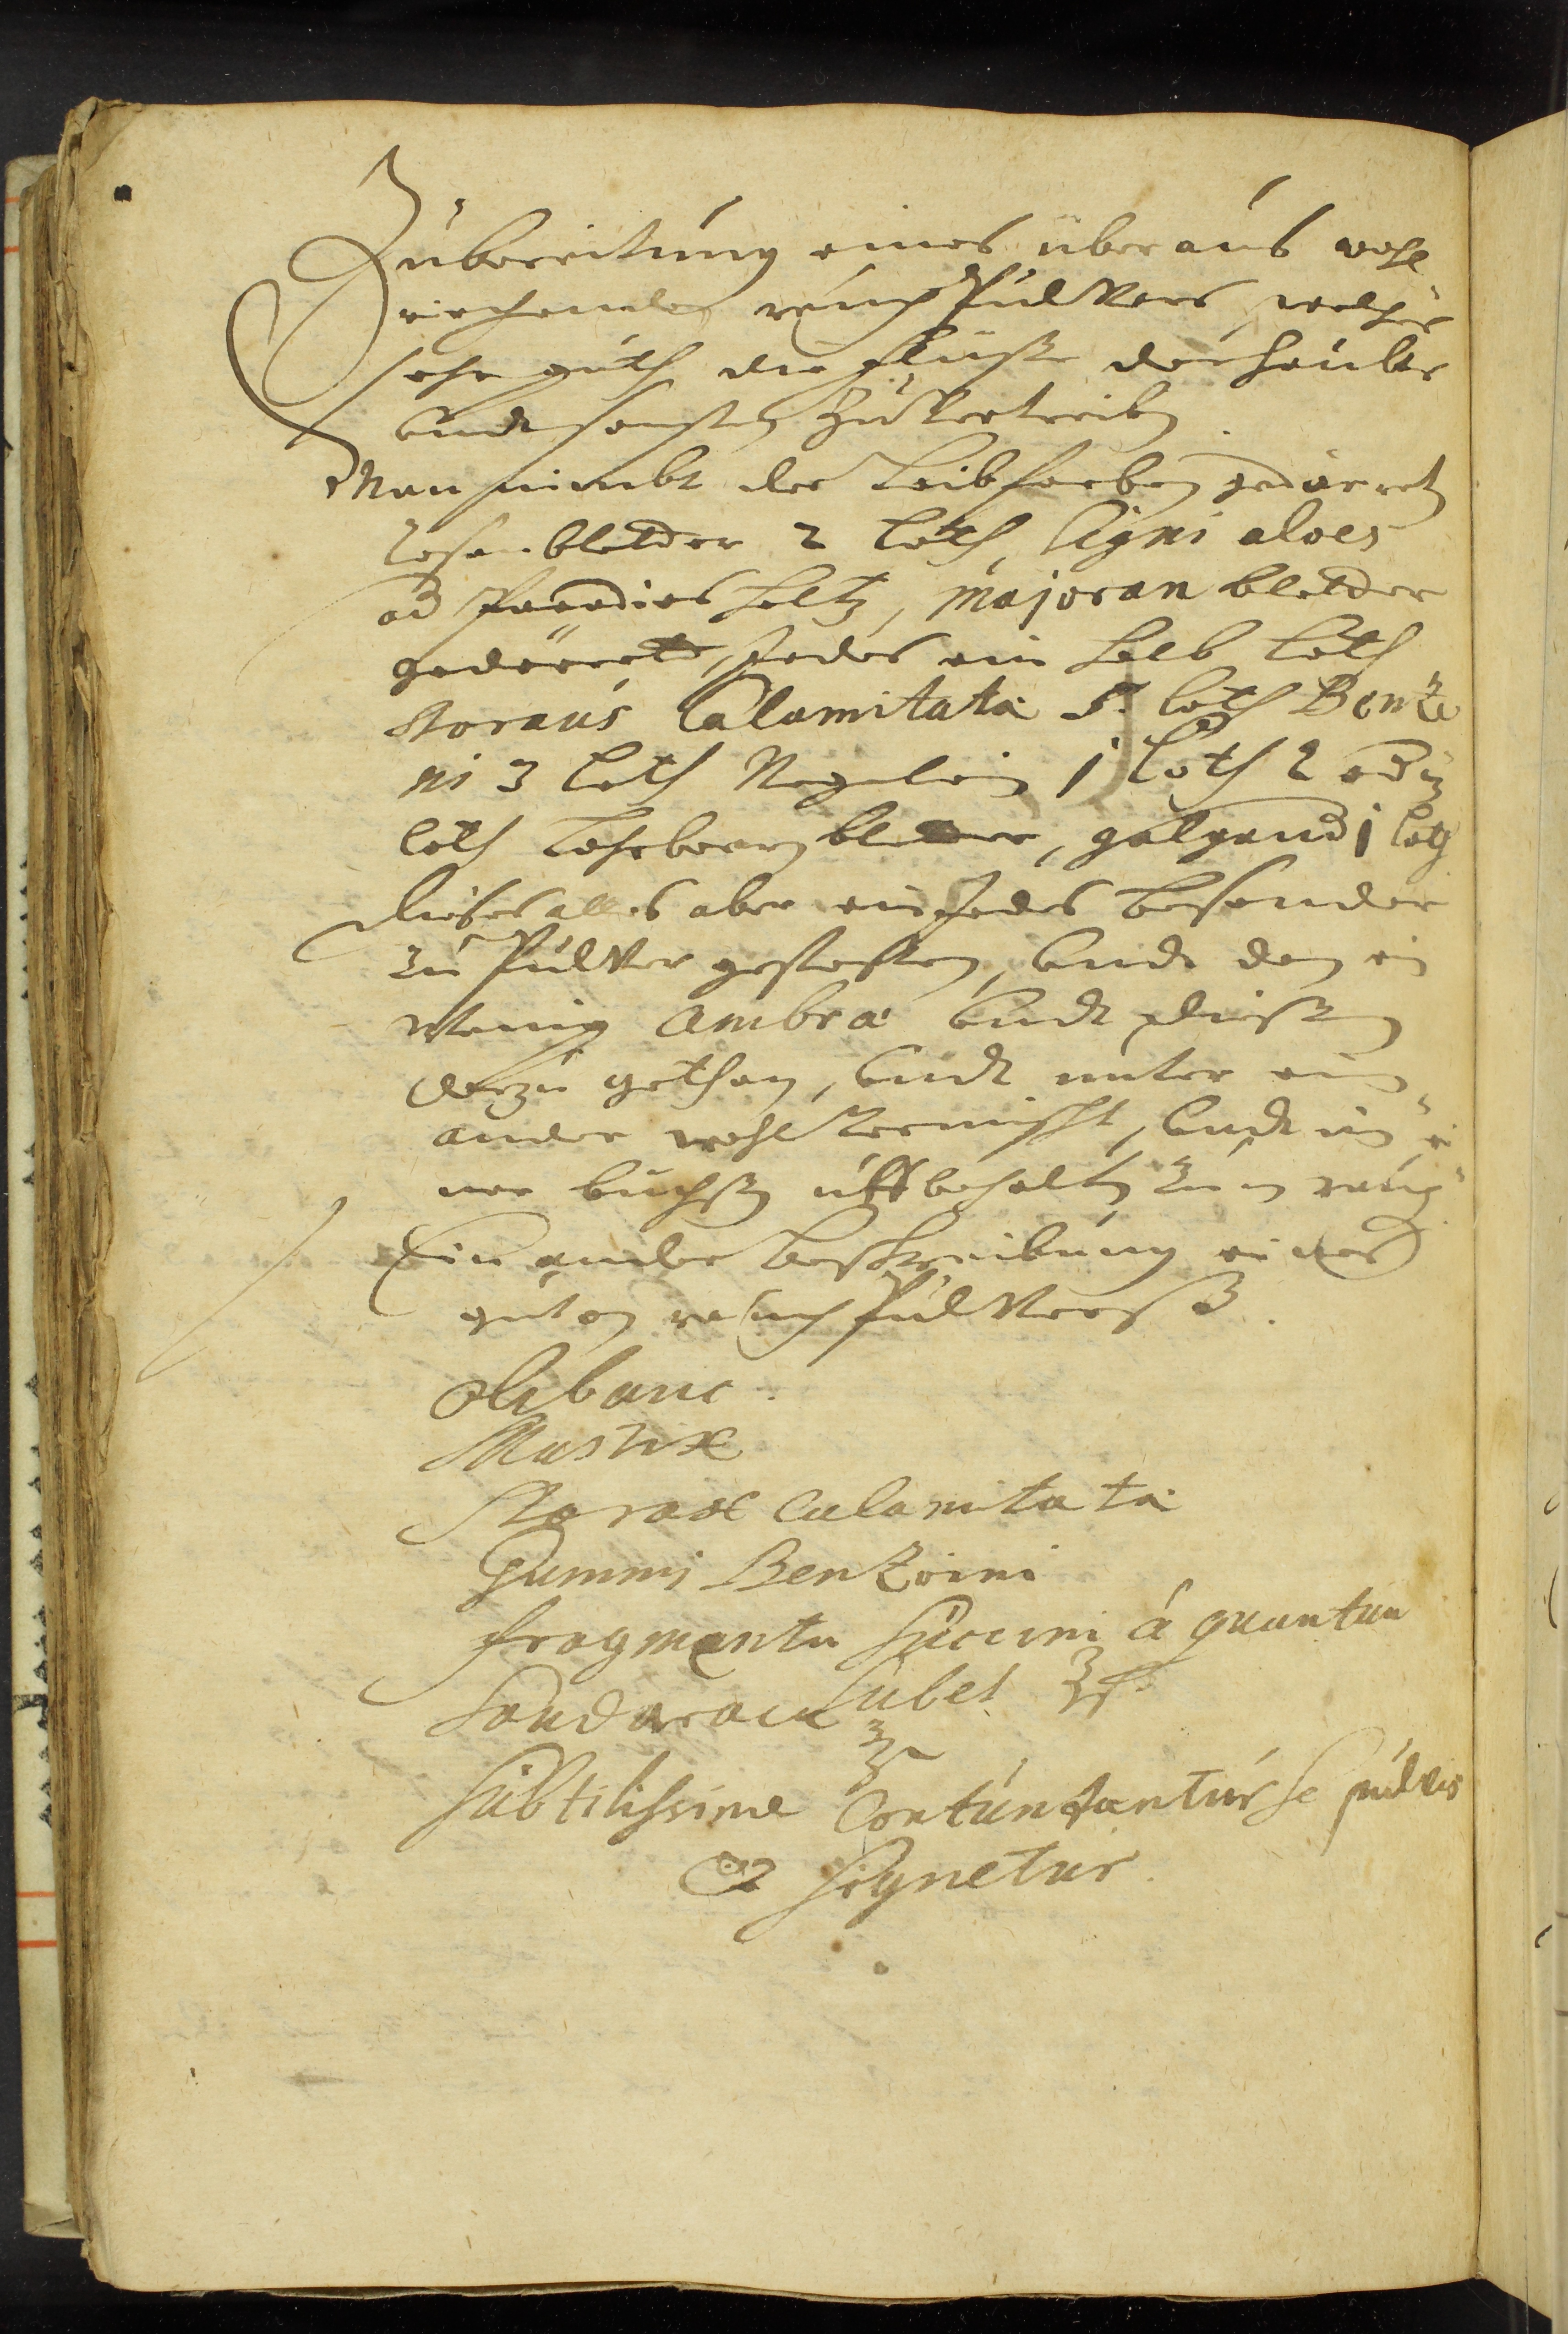 Zubereitung eines überaus wohl
riechendes rauch Pulvers, welches
sehr guth die flüße des haubts
undt sonsten zuvertreiben
Man nimbt der Leibfarben gedörreten
Rosenbletter 2 Loth, ligni aloes
od Paradies holtz, Majoran bletter
gedörrete, Jedes ein halb Loth
Storaus Calamitata 5. loth Bentzo
ni 3 loth Negelein 1 loth 2 od 3
loth Lohrbeern bletter, galgand 1 loth
dieses alles aber ein Jedes besonder
zu Pulver gestoßen, undt den ein
wenig Ambra undt
darzu gethan, undt unter ein
ander wohl vermischt, undt in ei
ner buchsen uffbehalten zum rauch
Ein ander beschreibung eines
guten rauch Pulverß.
olibani.
Mastix
Storax calamitata
Gummi Benzoini
fragmenta succini á quantum
Sandaraca lubet ℥ß.
℥
subtilissime Contundantur se pulvis
& signetur.